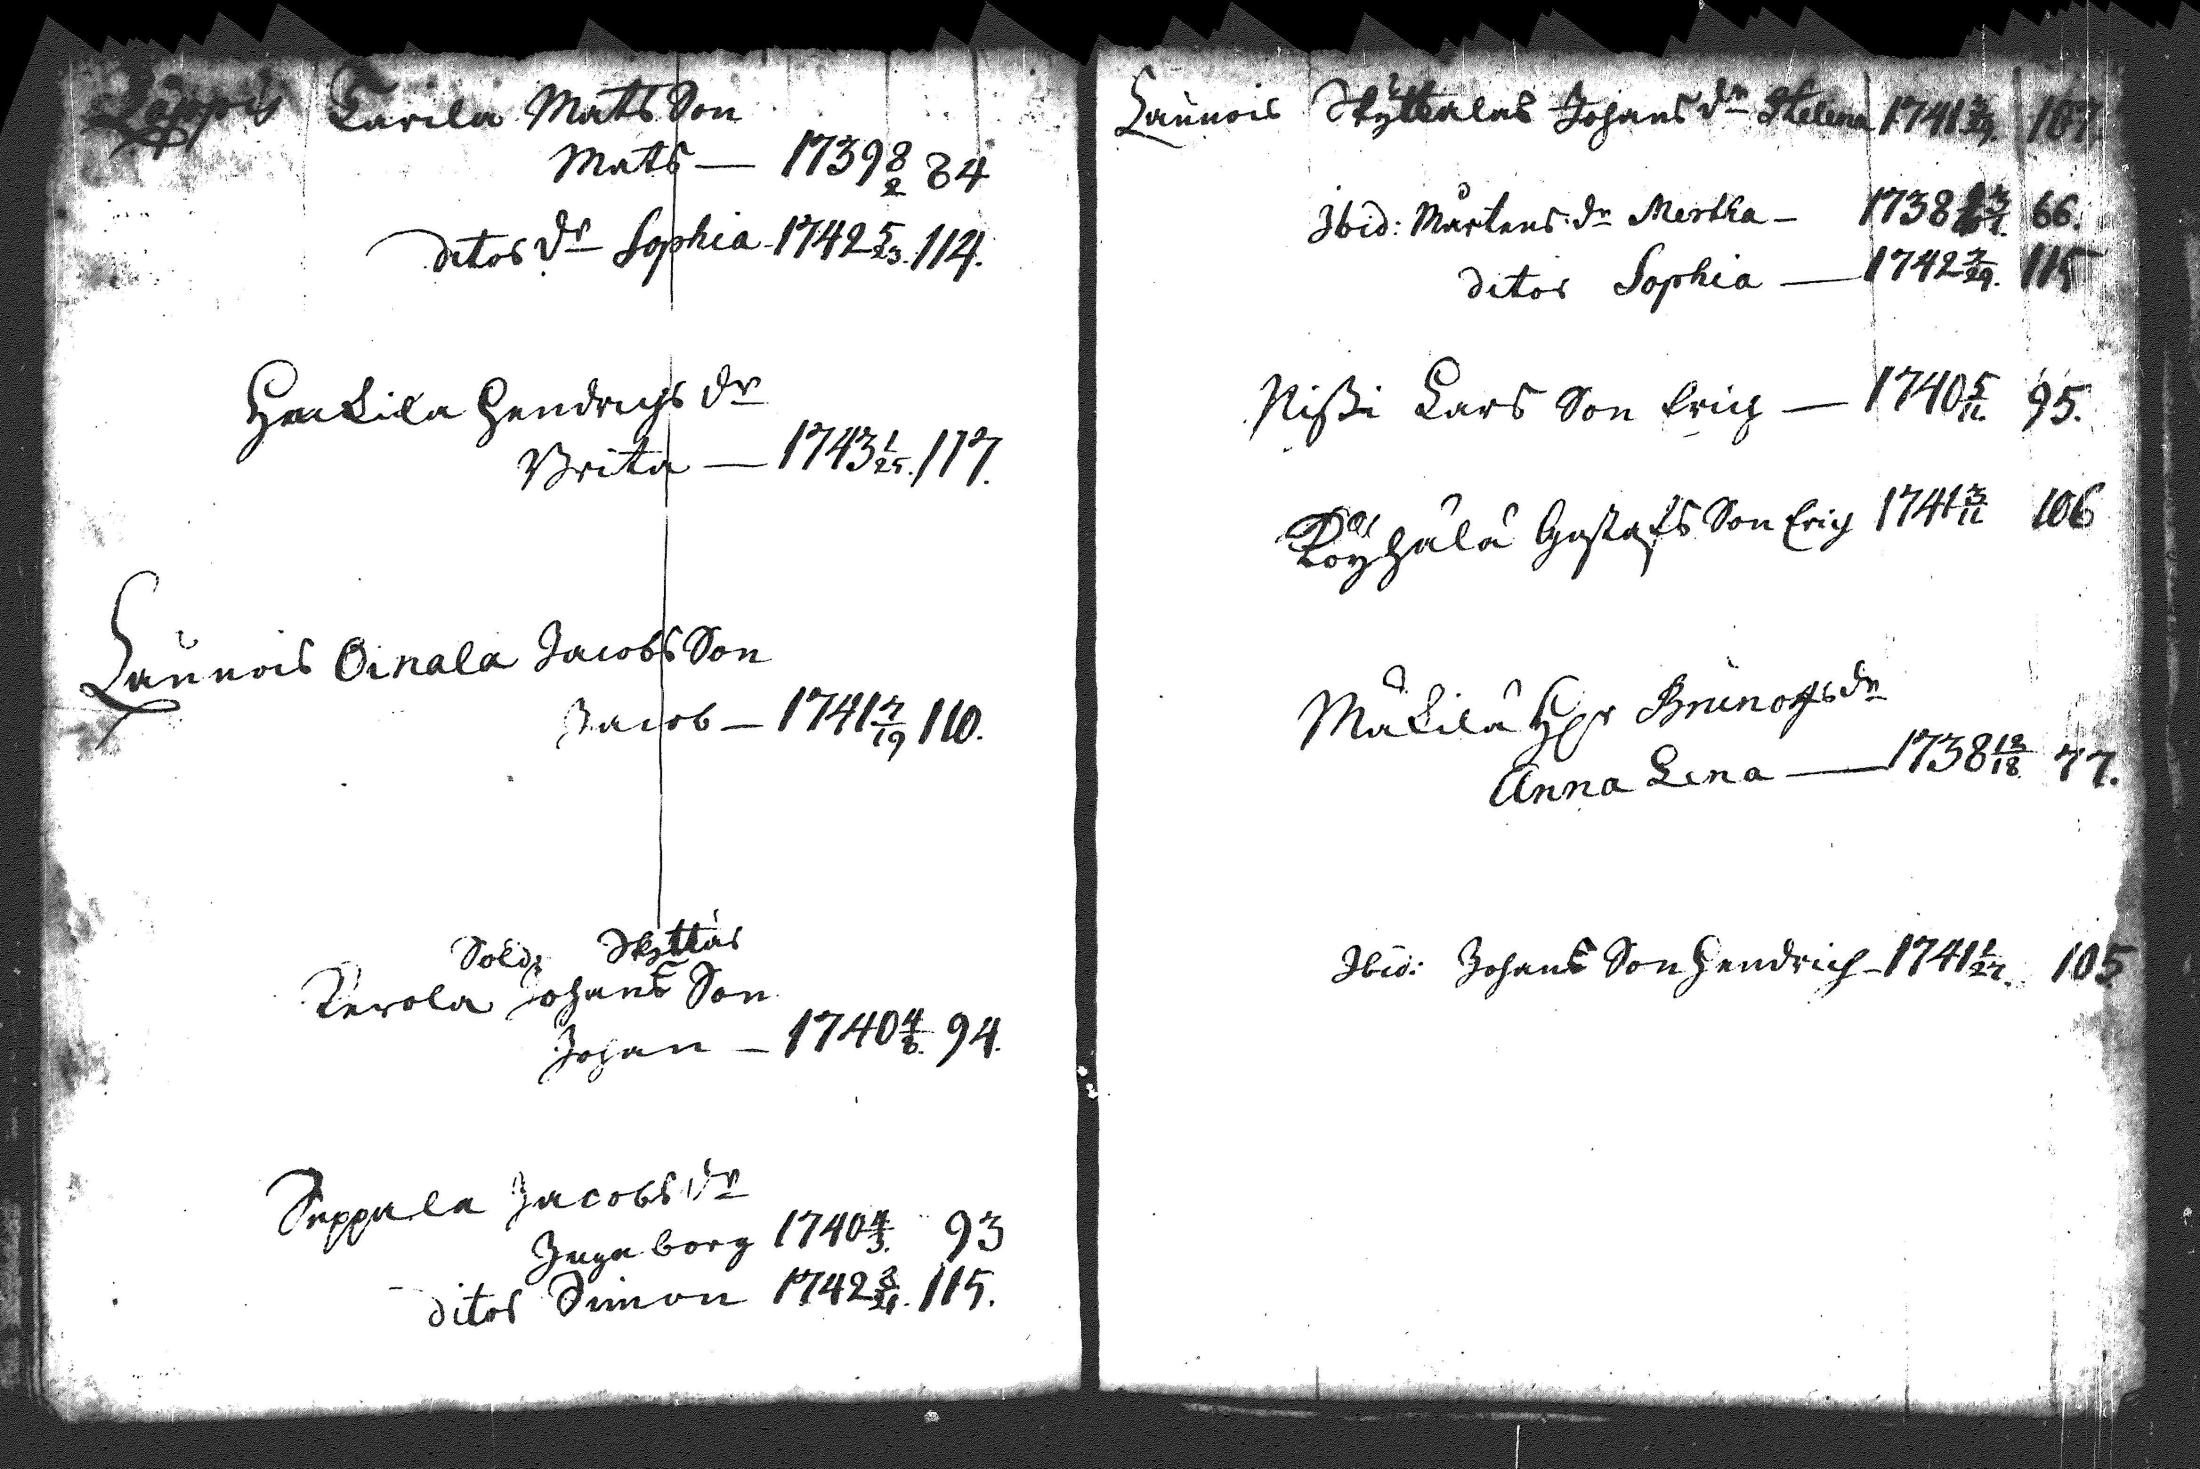 Leppis Tarila Mats Son
Mats — 1739 8/2 84
ditos dr Sophia - 1742 5/23. 114.
Heikila Hendrichs dr
Brita — 1743 1/25. 117.
Launois Oinala Jacobs Son
Jacob — 1741 7/19 110.
Sold: Skyttäs
Kerola Johans Son
Johan — 1740 4/6. 94.
Seppala Jacobs dr
Ingeborg 1740 4/3. 93
ditos Simon 1742 115.
Launois Skyttalas Johans dr Helena 1741 107
Ibid: Mårtens dr Mertha — 1738 66.
ditos Sophia — 1742 115
Nißi Lars Son Erich — 1740 5/11. 95.
Köyhälä Gustafs Son Erich 1741 3/11 106
Mäkilä Hr Brunous dr
Anna Lena — 1738 12/18. 77.
Ibid: Johans Son Hendrich — 1741 1/27. 105